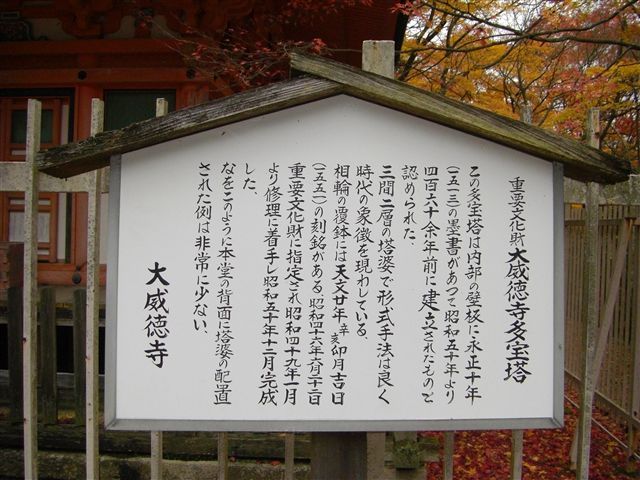 重要文化財大威徳寺多宝塔
この多宝塔は内部の壁板に永正十年
(一五一三)の墨書があって昭和五十年より
四百六十余年前に建立されたものと
認められた、
三間二層の塔姿で形式手法は良く
時代の象徴を現わしている、
相輪の覆鉢には天文廿年辛亥卯月吉日
(一五五一)の刻銘がある昭和四十六年六月二十二日
重要文化財に指定され昭和四十九年一月
より修理に着手し昭和五十年十二月完成
した、
なをこのように本堂の背面に塔婆の配置
された例は非常に少ない、
大威徳寺